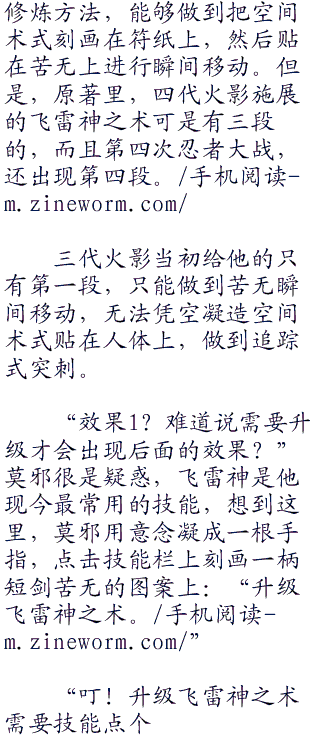 修炼方法，能够做到把空间
术式刻画在符纸上，然后贴
在苦无上进行瞬间移动。但
是，原著里，四代火影施展
的飞雷神之术可是有三段
的，而且第四次忍者大战，
还出现第四段。/手机阅读-
m.zineworm.com/
三代火影当初给他的只
有第一段，只能做到苦无瞬
间移动，无法凭空凝造空间
术式贴在人体上，做到追踪
式突刺。
“效果1？难道说需要升
级才会出现后面的效果？”
莫邪很是疑惑，飞雷神是他
现今最常用的技能，想到这
里，莫邪用意念凝成一根手
指，点击技能栏上刻画一柄
短剑苦无的图案上：“升级
飞雷神之术。/手机阅读-
m.zineworm.com/”
“叮！升级飞雷神之术
需要技能点个